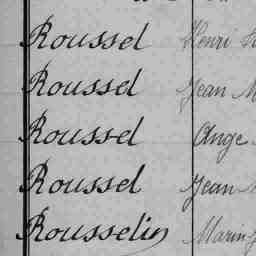 Roussel Henri
Roussel Jean M
Roussel Ange
Roussel Jean
Rousselin Marin